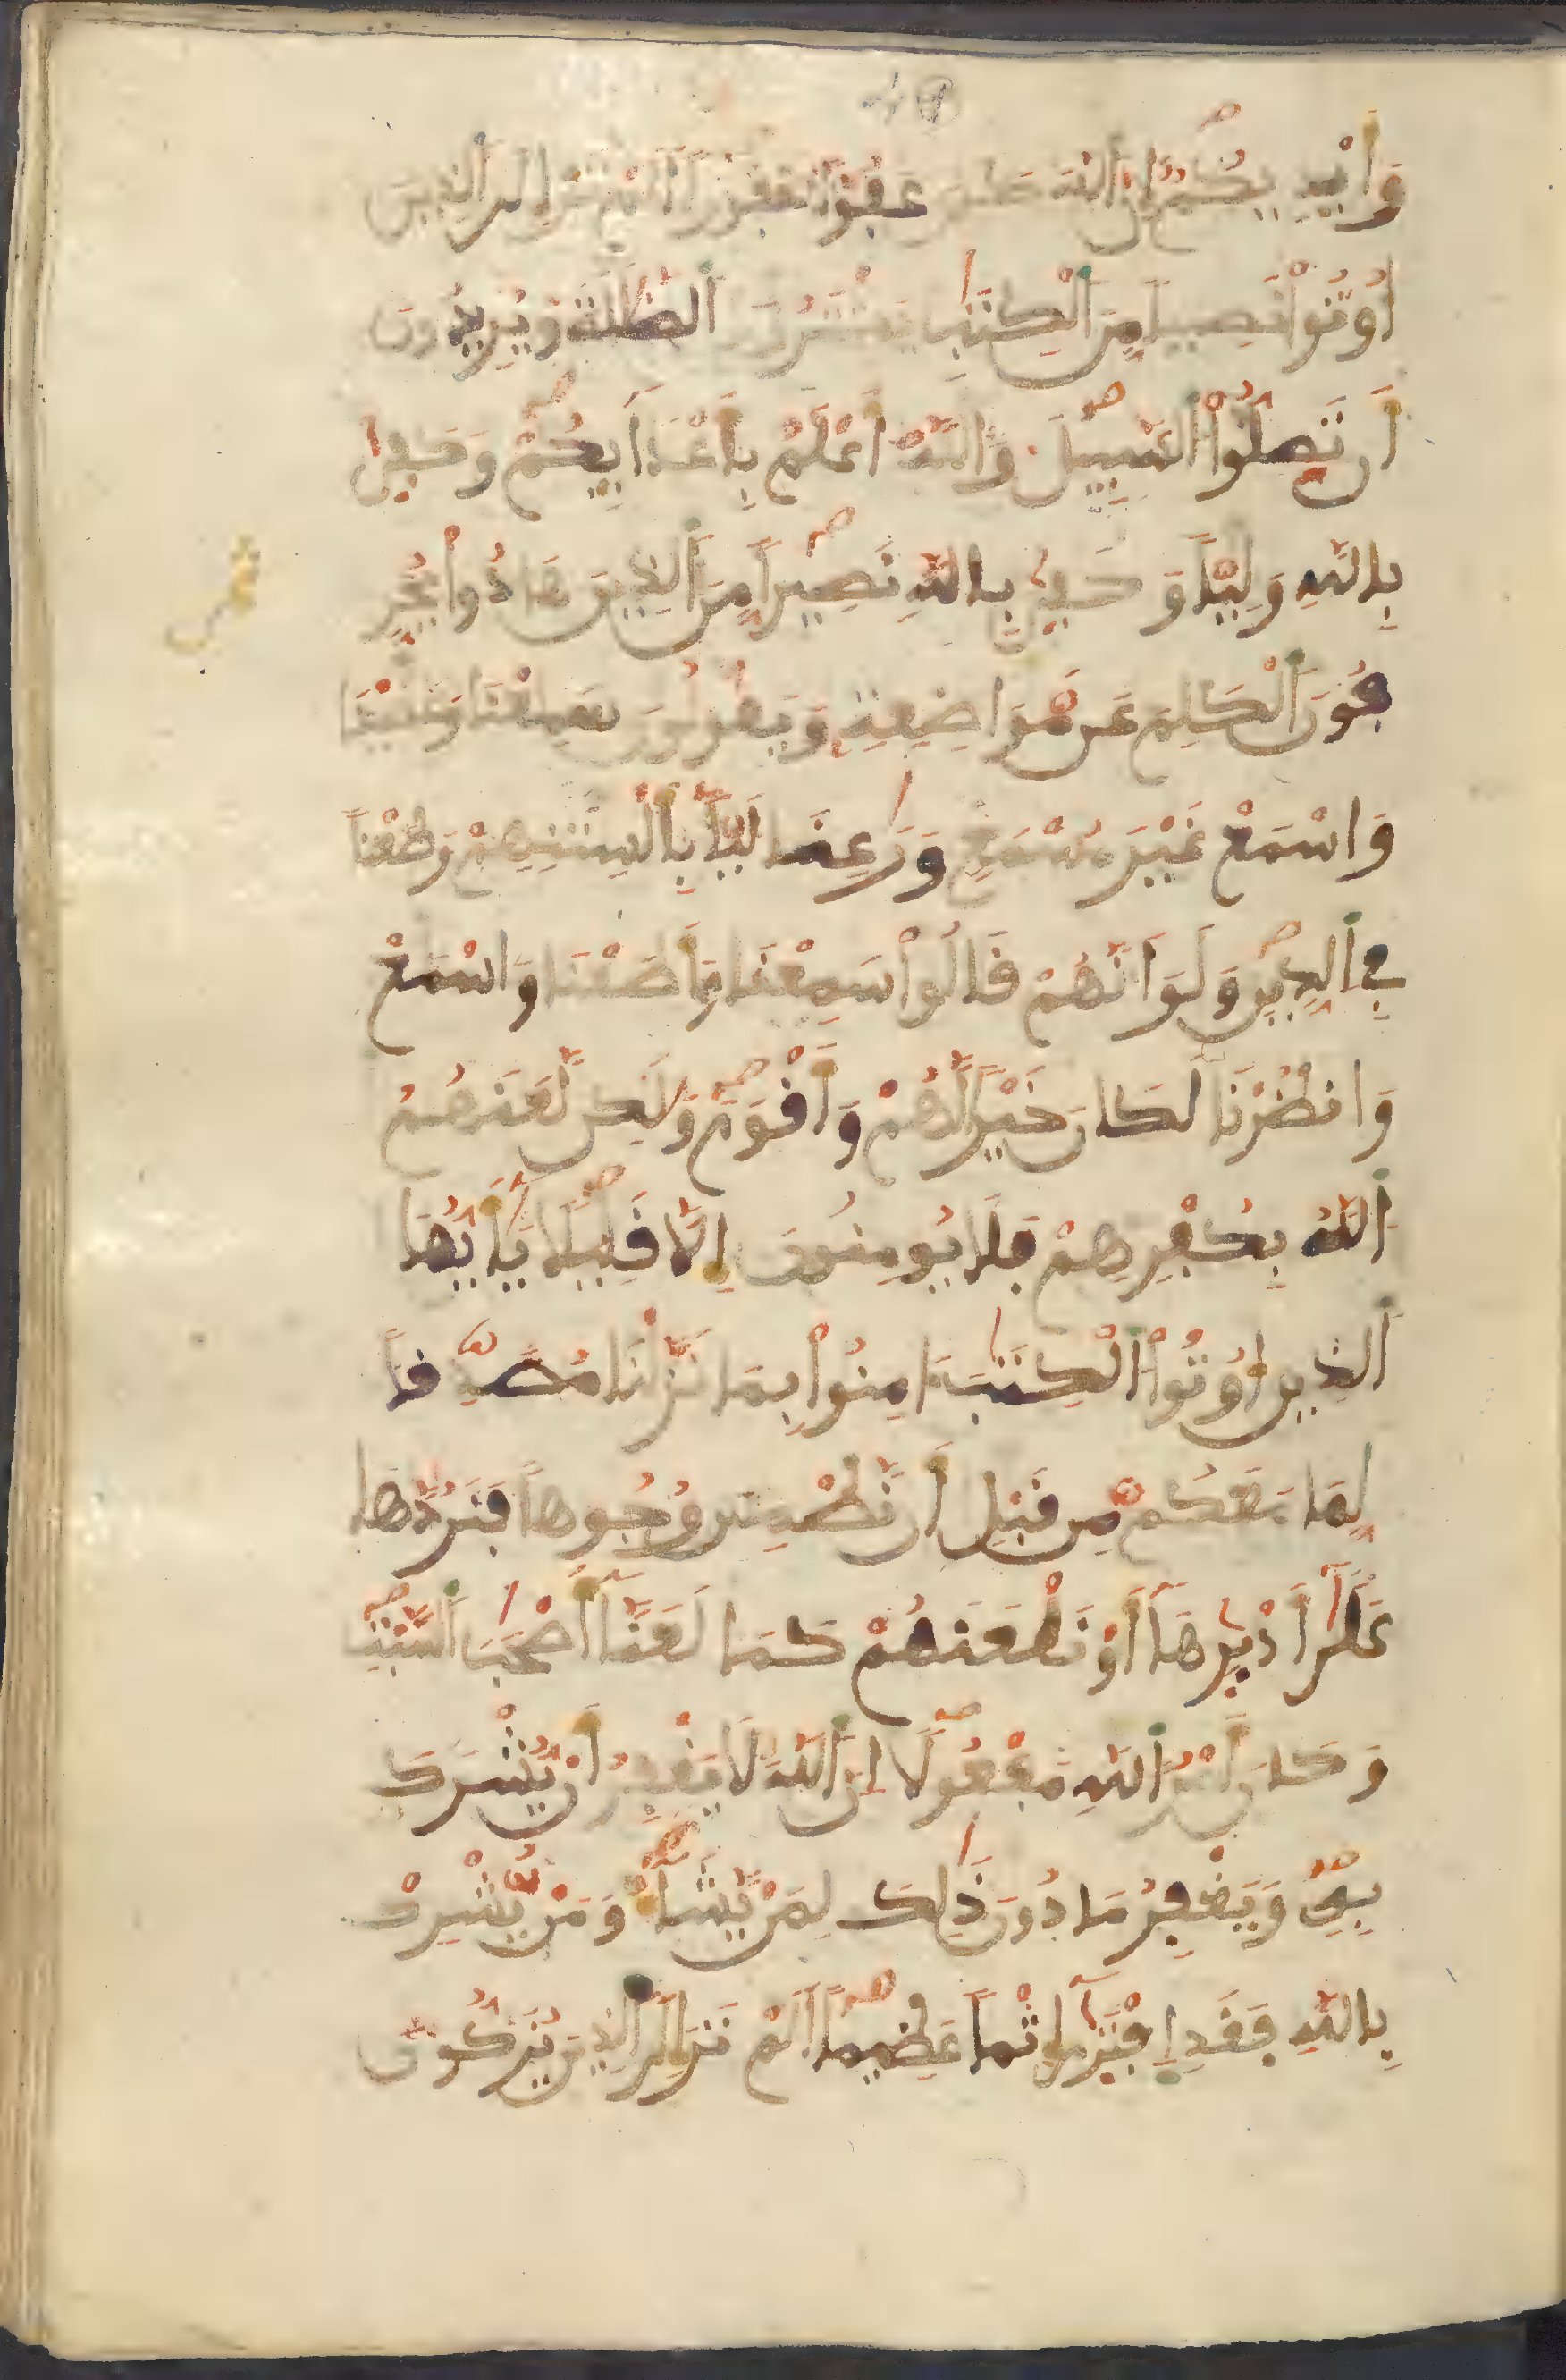 وَأَيْدِيكُمْ إِنَّ اَللَّهَ كَانَ عَفُوّاً غَفُوراً اَلَمْ تَرَ إِلَى اَلذِينَ
أُوتُواْ نَصِيباً مِّنَ اَلْكِتَٰبِ يَشْتَرُونَ اَلضَّلَٰلَةَ وَيُرِيدُونَ
أَن تَضِلُّواْ اُلسَّبِيلَ وَاللَّهُ أَعْلَمُ بِأَعْدَآئِكُمْ وَكَفِىٰ
بِاللَّهِ وَلِيّاً وَكَفِىٰ بِاللَّهِ نَصِيراً مِّنَ اَلذِينَ هَادُواْ يُحَرِّ
فُونَ اَلْكَلِمَ عَن مَّوَاضِعِهِ وَيَقُولُونَ سَمِعْنَا وَعَصَيْنَا
وَاسْمَعْ غَيْرَ مُسْمَعٍ وَرَٰعِنَا لَيّاً بِأَلْسِنَتِهِمْ وَطَعْناً
فِى اِلدِّينِ وَلَوَ اَنَّهُمْ قَالُواْ سَمِعْنَا وَأَطَعْنَا وَاسْمَعْ
وَانظُرْنَا لَكَانَ خَيْراً لَّهُمْ وَأَقْوَمَ وَلَٰكِن لَّعَنَهُمُ
اُللَّهُ بِكُفْرِهِمْ فَلَا يُومِنُونَ إِلَّا قَلِيلًا يَٰأَيُّهَا
اَلذِينَ أُوتُواْ اُلْكِتَٰبَ ءَامِنُواْ بِمَا نَزَّلْنَا مُصَدِّقاً
لِّمَا مَعَكُم مِّن قَبْلِ أَن نَّطْمِسَ وُجُوهاً فَنَرُدَّهَا
عَلَىٰ أَدْبَٰرِهَآ أَوْ نَلْعَنَهُمْ كَمَا لَعَنَّآ أَصْحَٰبَ اَلسَّبْتِ
وَكَانَ أَمْرُ اُللَّهِ مَفْعُولًا إِنَّ اَللَّهَ لَا يَغْفِرُ أَنْ يُّشْرَكَ
بِهِ وَيَغْفِرُ مَا دُونَ ذَٰلِكَ لِمَنْ يَّشَآءُ وَمَنْ يُّشْرِكْ
بِاللَّهِ فَقَدِ اِفْتَرَىٰ إِثْماً عَظِيماً اَلَمْ تَرَ إِلَى اَلذِينَ يُزَكُّونَ